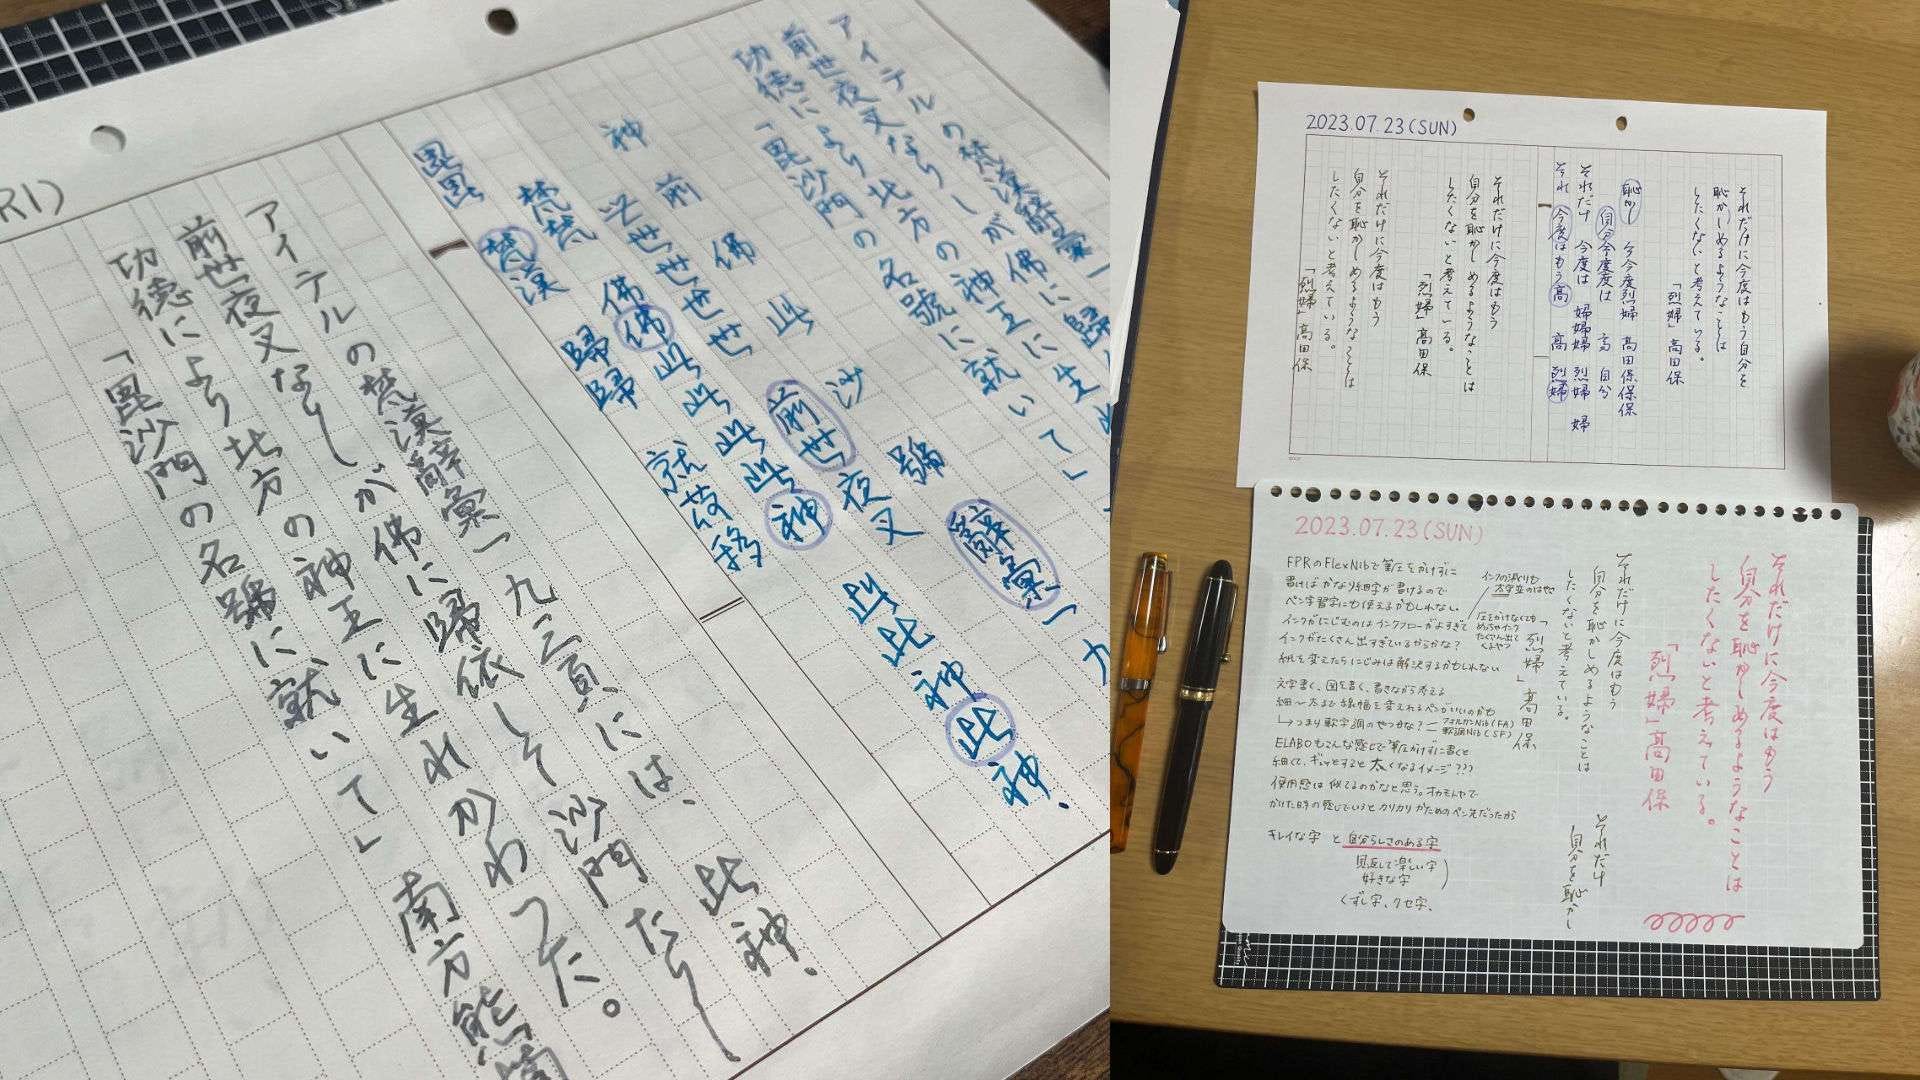 RI)
アイテルの梵漢辭彙一
前世夜叉なりしが佛に歸
功徳により北方の神王に生れ
「毘沙門の名號に就いて」
神 前 佛 此 沙 號 辭彙一九
世世世世 前世 夜叉
梵梵 佛佛此此此此此神 此此神此神、
毘毘 梵漢 歸歸 就
アイテルの梵漢辭彙一九三頁には、此神、
前世夜叉なりしが佛に歸依して沙門たりし
功徳により北方の神王に生れかわつた。
「毘沙門の名號に就いて」南方熊楠
2023.07.23(SUN)
それだけに今度はもう自分を
恥かしめるようなことは
したくないと考えている。
「烈婦」高田保
恥かし 今今度烈婦 高田保保保
自分今度度は 高 自分
それだけ 今度は 婦婦婦 烈婦 婦
それ 今度はもう高 高 烈婦
それだけに今度はもう
自分を恥かしめるようなことは
したくないと考えている。
「烈婦」高田保
それだけに今度はもう
自分を恥かしめるようなことは
したくないと考えている。
「烈婦」高田保
2023.07.23(SUN)
それだけに今度はもう
自分を恥かしめるようなことは
したくないと考えている。
「烈婦」高田保
それだけに今度はもう
自分を恥かしめるようなことは
したくないと考えている。
「烈婦」高田保
それだけ
自分を恥かし
FPRのFlexNibで筆圧をかけずに
書けばかなり細字が書けるので
ペン習字にも使えるかもしれない
インクがにじむのはインクフローがよすぎて
インクがたくさん出すぎているからかな？
紙を変えたらにじみは解決するかもしれない
インクの減りも
太字並のはやさ
圧をかけなくても
めっちゃインク
たくさん出て
くるやつ
文字書く、図を書く、書きながら考える
細〜太まで線幅を変えれるペンがいいのかも
↳つまり軟字調のやつかな？ー フォルカンNib(FA)
軟調Nib(SF)
ELABOもこんな感じで筆圧かけずに書くと
細くて、ギュッとすると太くなるイメージ???
使用感は似てるのかなと思う。オカモトヤで
かけた時の感じでいうとカリカリかためのペン先だったから
キレイな字 と 自分らしさのある字
見返して楽しい字
好きな字
くずし字、クセ字、